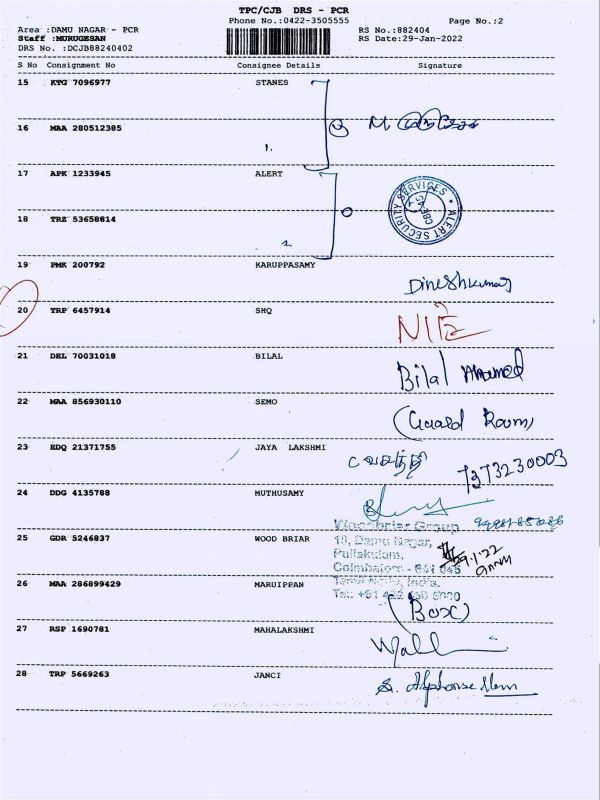 TPC/CJB DRS - PCR
Phone No.:0422-3505555
Page No.:2
Area :DAMU NAGAR - PCR
RS No.:882404
Staff :MURUGESAN
RS Date:29-Jan-2022
DRS No. :DCJB88240402
S No Consignment No Consignee Details Signature
15 KTG 7096977 STANES
16 MAA 280512385
17 APK 1233945 ALERT
ALERT SECURITY SERVICES
CBE
18 TRZ 53658814
19 PMK 200792 KARUPPASAMY
Dineshkumar
20 TRP 6457914 SHQ
21 DEL 70031018 BILAL
Bilal Ahamed
22 MAA 856930110 SEMO
(Guard Room)
23 EDQ 21371755 JAYA LAKSHMI
7373230003
24 DDG 4135788 MUTHUSAMY
Group
25 GDR 5246837 WOOD BRIAR
18, Damu Nagar,
Puliakulam,
Coimbatore - 641 045
Tamil Nadu, India.
26 MAA 286899429 MARUIPPAN
(Box)
27 RSP 1690781 MAHALAKSHMI
28 TRP 5669263 JANCI
S. Alphonse